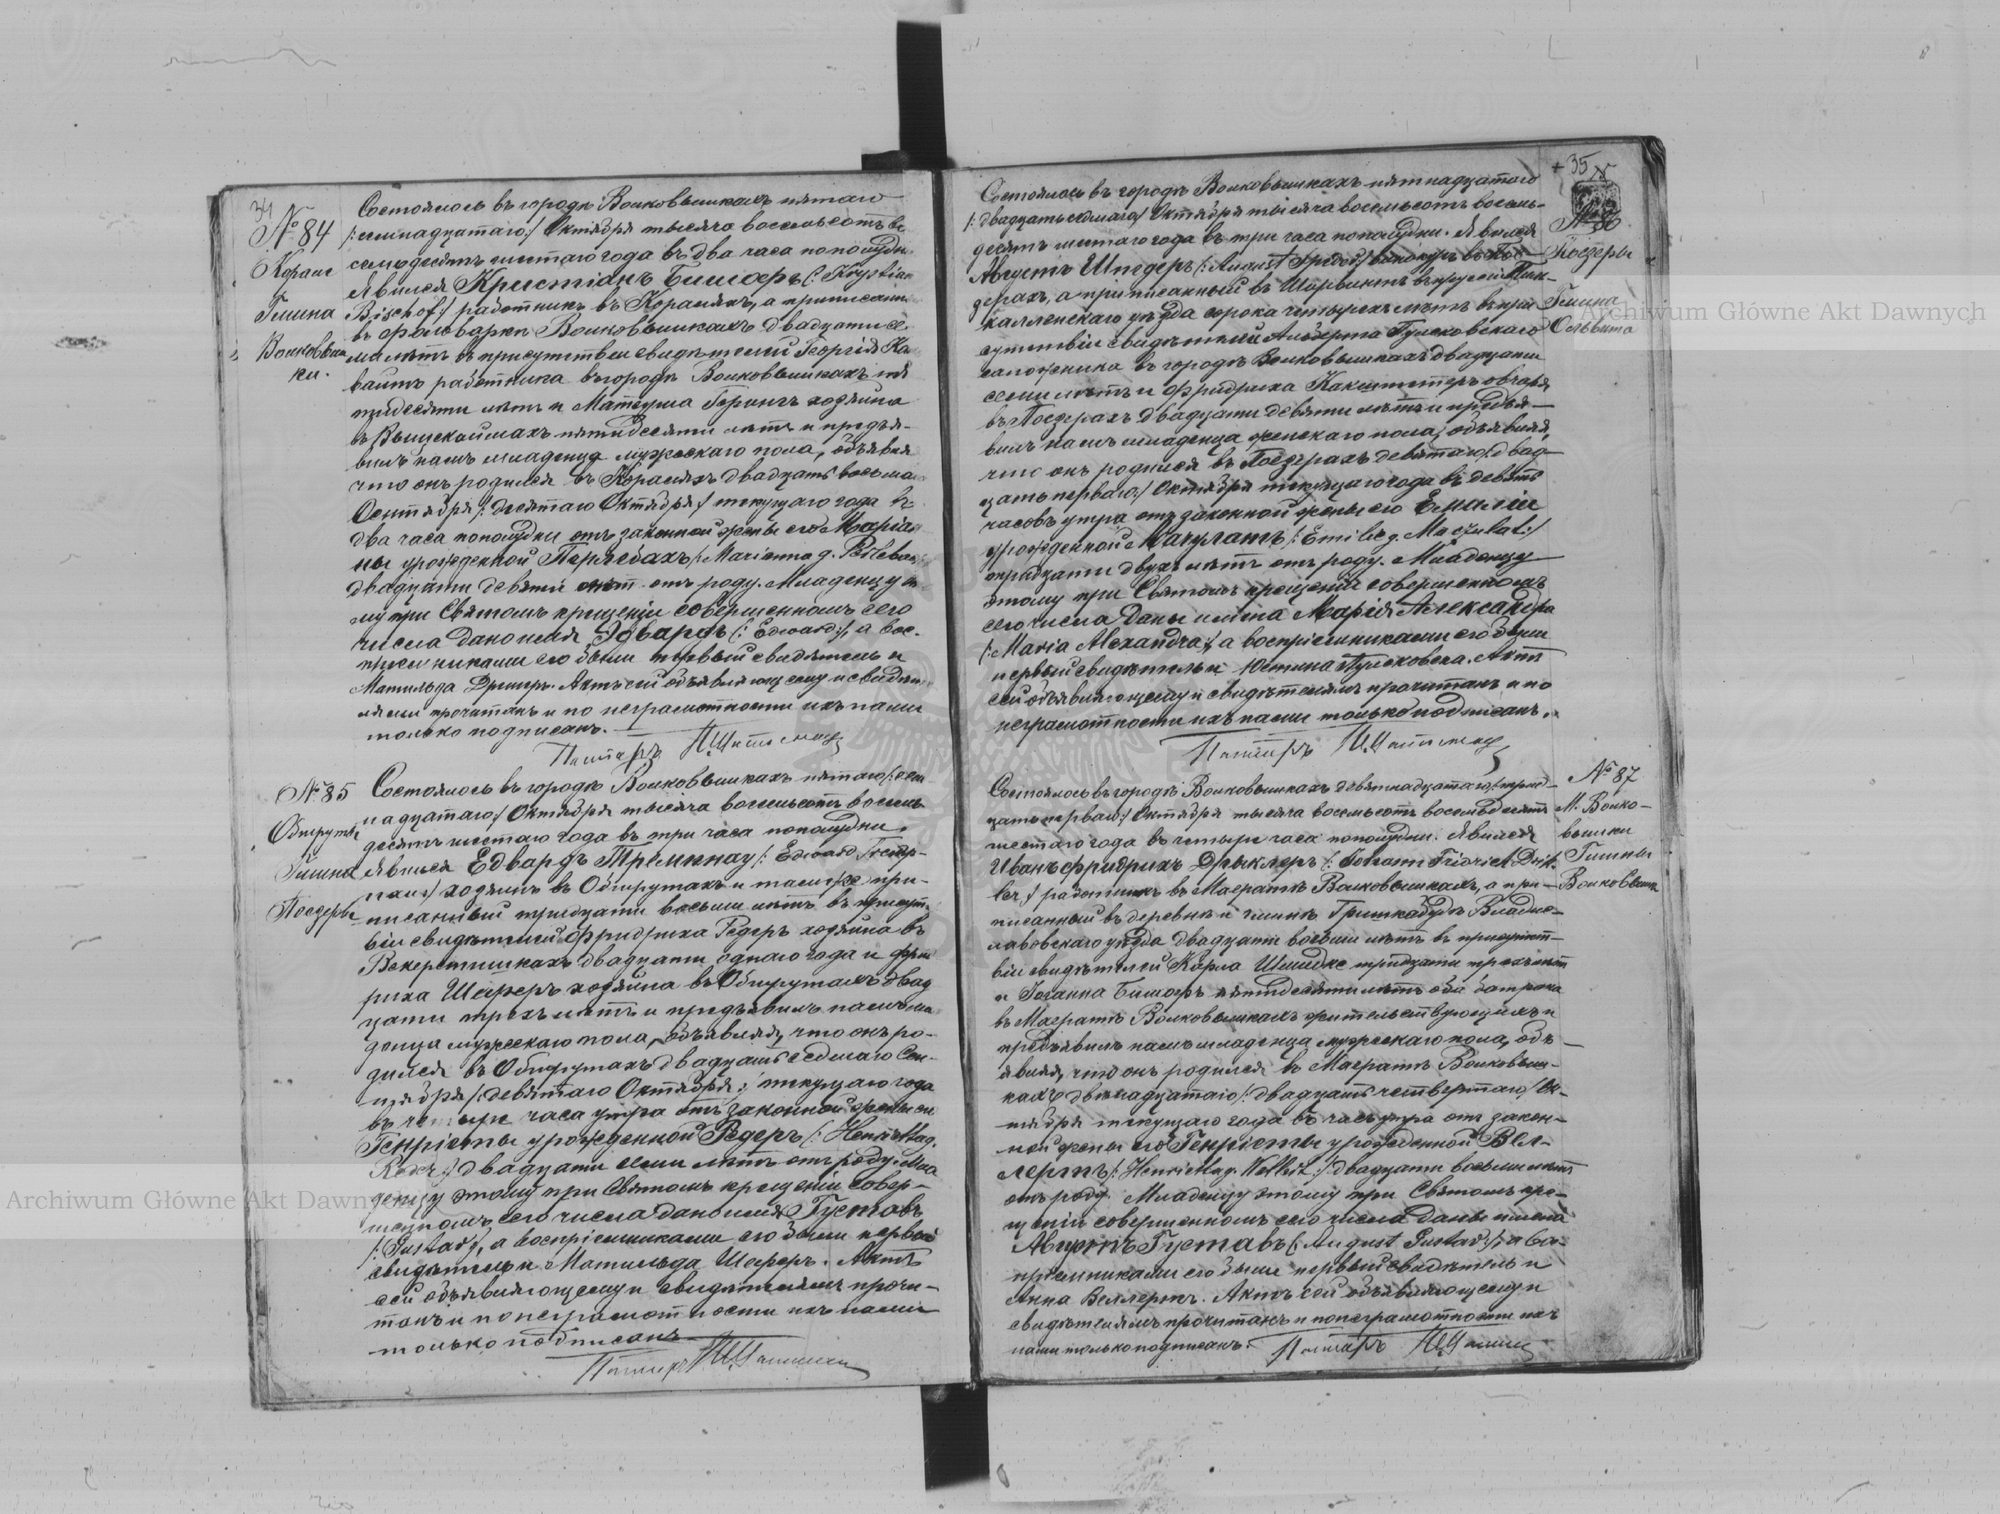 34
№ 84
Корале
Гмина
Волковыш
ки.
Состоялось въ городѣ Волковышкахъ пятаго
/:семнадцатаго:/ Октября тысяча восемьсотъ во
семьдесятъ шестаго года въ два часа пополудни.
Явился Кристіанъ Бишофъ (: Krystian
Bischof:/ работникъ въ Кораляхъ, а приписанный
въ фольваркѣ Волковышкахъ двадцати се
ми лѣтъ въ присутствіи свидѣтелей Георгія Ка
работника въ городѣ Волковышкахъ
лѣтъ и Матеуша Герингъ хозяина
въ пятидесяти лѣтъ и предъя-
вилъ намъ младенца мужескаго пола, объявляя
что онъ родился въ Кораляхъ двадцать восьмаго
Сентября /: десятаго Октября:/ текущаго года въ
два часа пополудни отъ законной жены его Маріан
ны урожденной Перлебахъ /: Marianna g. Perlebach
двадцати девяти лѣтъ отъ роду. Младенцу это
му при Святомъ крещеніи совершенномъ сего
числа дано имя Эдвардъ (: Edward:/, а вос-
пріемниками его были первый свидѣтель и
Матильда Дригеръ. Актъ сей объявляющему и свидѣте
лямъ прочитанъ и по неграмотности ихъ нами
только подписанъ.
Пасторъ
№ 85
Обшруты
Гмина
Поезеры
Состоялось въ городѣ Волковышкахъ пятаго /: сем
надцатаго:/ Октября тысяча восемьсотъ восемь
десятъ шестаго года въ три часа пополудни.
Явился Едвардъ Тремпнау /: Edward Tremp-
nau:/ хозяинъ въ Обшрутахъ и тамже при-
писанный тридцати восьми лѣтъ въ присутст
віи свидѣтелей Фридриха Редеръ хозяина въ
двадцати одного года и Фрид
риха Шеферъ хозяина въ Обшрутахъ двад
цати трехъ лѣтъ и предъявилъ намъ мла
денца мужескаго пола, объявляя, что онъ ро-
дился въ Обшрутахъ двадцать седьмаго Сен-
тября /: девятаго Октября:/ текущаго года
въ четыре часа утра отъ законной жены его
Генріеты урожденной Редеръ /: Henrietta g.
Reder:/ двадцати семи лѣтъ отъ роду. Мла
денцу этому при Святомъ крещеніи совер-
шенномъ сего числа дано имя Густавъ
/: Gustav:/, а воспріемниками его были первый
свидѣтель и Матильда Шеферъ. Актъ
сей объявляющему и свидѣтелямъ прочи-
танъ и по неграмотности ихъ нами
только подписанъ.
Пасторъ
+ 35
№ 86
Поезеры
Гмина
Ольвита
Состоялось въ городѣ Волковышкахъ пятнадцатаго
/: двадцать седьмаго:/ Октября тысяча восемьсотъ восемь-
десятъ шестаго года въ три часа пополудни. Явился
Августъ Шредеръ /: August винокуръ въ Пое-
зерахъ, а приписанный въ въ Пруссіи Пил-
калленскаго уѣзда сорока четырехъ лѣтъ въ при
сутствіи свидѣтелей Альберта Гульсковскаго
сапожника въ городѣ Волковышкахъ двадцати
семи лѣтъ и Фридриха овчара
въ Поезерахъ двадцати девяти лѣтъ и предъя-
вилъ намъ младенца женскаго пола, объявляя,
что онъ родился въ Поезерахъ девятаго /: двад-
цать перваго:/ Октября текущаго года въ девять
часовъ утра отъ законной жены его Емиліи
урожденной Мачулатъ /: Emilie g. Maczulat:/
тридцати двухъ лѣтъ отъ роду. Младенцу
этому при Святомъ крещеніи совершенномъ
сего числа даны имена Марія Александра
/: Maria Alexandra:/, а воспріемниками его были
первый свидѣтель и Юстина Гульсковска. Актъ
сей объявляющему и свидѣтелямъ прочитанъ и по
неграмотности ихъ нами только подписанъ.
Пасторъ
№ 87
М. Волко-
вышки
Гмины
Волковышки
Состоялось въ городѣ Волковышкахъ девятнадцатаго /: трид-
цать перваго:/ Октября тысяча восемьсотъ восемьдесятъ
шестаго года въ четыре часа пополудни. Явился
Иванъ Фридрихъ Дриклеръ /: Johann Fridrich Drik-
ler:/ работникъ въ Маератѣ Волковышкахъ, а при-
писанный въ деревнѣ и гминѣ Гришкабудѣ Владис-
лавовскаго уѣзда двадцати восьми лѣтъ въ присутст-
віи свидѣтелей Карла Шмидке тридцати трехъ лѣтъ
и Іоганна Бишофъ пятидесяти лѣтъ оба батрака
въ Маератѣ Волковышкахъ жительствующихъ и
предъявилъ намъ младенца мужескаго пола, объ-
являя, что онъ родился въ Маератѣ Волковыш-
кахъ двѣнадцатаго /: двадцать четвертаго:/ Ок-
тября текущаго года въ часъ утра отъ закон-
ной жены его Генріеты урожденной Вел-
лертъ /: Henrietta g. Wellert:/ двадцати восьми лѣтъ
отъ роду. Младенцу этому при Святомъ кре-
щеніи совершенномъ сего числа даны имена
Августъ Густавъ (: August Gustav:/, а во-
пріемниками его были первый свидѣтель и
Анна Веллертъ. Актъ сей объявляющему и
свидѣтелямъ прочитанъ и по неграмотности ихъ
нами только подписанъ.
Пасторъ
Archiwum Główne Akt Dawnych
Archiwum Główne Akt Dawnych